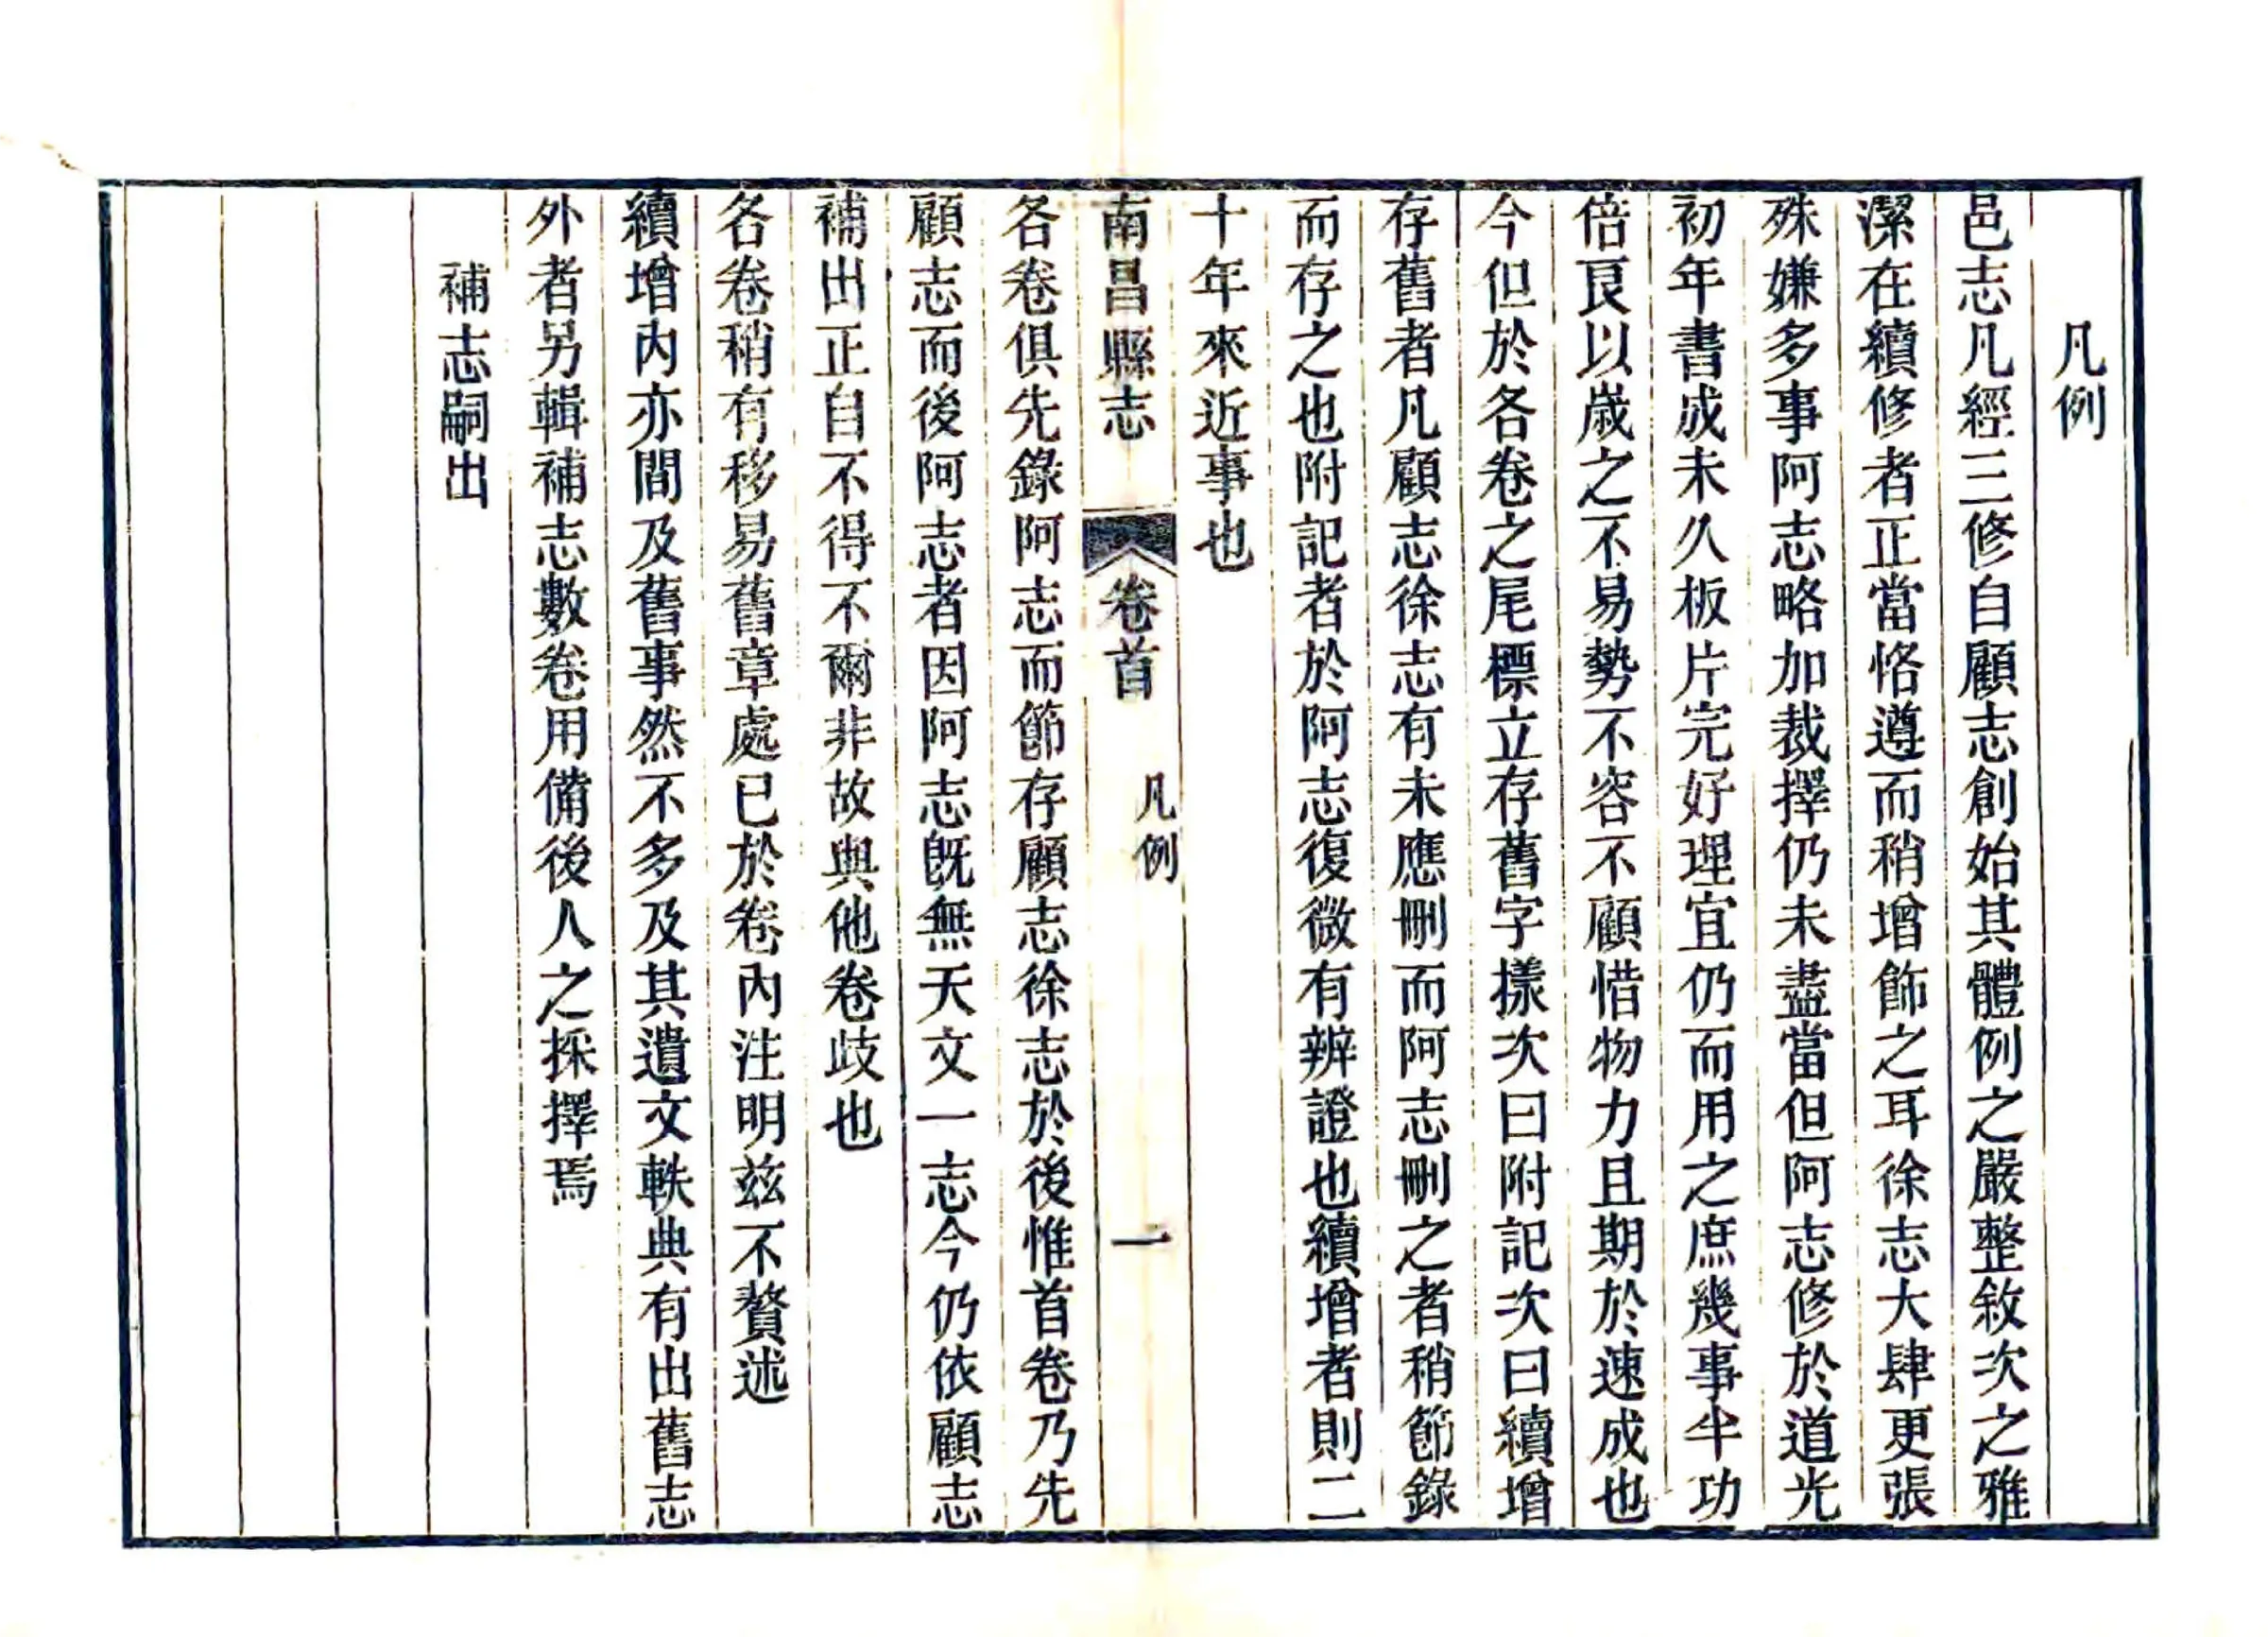 凡例
邑志凡經三修自顧志創始其體例之嚴整敘次之雅
潔在續修者正當恪遵而稍增飾之耳徐志大肆更張
殊嫌多事阿志略加裁擇仍未盡當但阿志修於道光
初年書成未久板片完好理宜仍而用之庶幾事半功
倍艮以歲之不易勢不容不顧惜物力且期於速成也
今但於各卷之尾標立存舊字樣次曰附記次曰續增
存舊者凡顧志徐志有未應刪而阿志刪之者稍節錄
而存之也附記者於阿志復微有辨證也續增者則二
十年來近事也
南昌縣志 卷首 凡例 一
各卷俱先錄阿志而節存顧志徐志於後惟首卷乃先
顧志而後阿志者因阿志旣無天文一志今仍依顧志
補出正自不得不爾非故與他卷歧也
各卷稍有移易舊章處已於卷內注明兹不贅述
續增內亦間及舊事然不多及其遺文軼典有出舊志
外者另輯補志數卷用備後人之採擇焉
補志嗣出